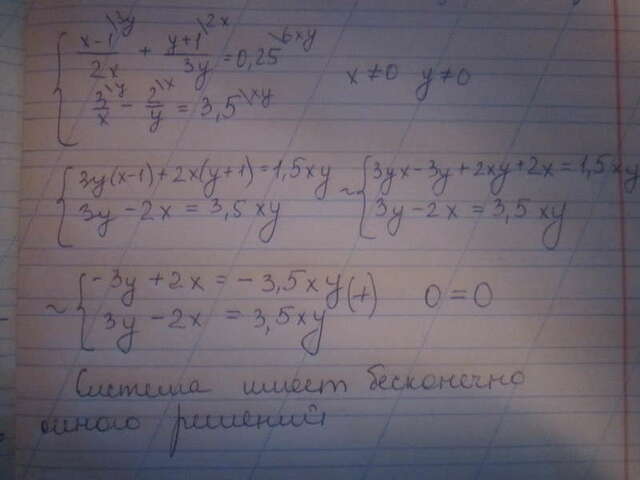 { (x-1)/(2x) \3y + (y+1)/(3y) \2x = 0,25 \6xy
x ≠ 0 y ≠ 0
3/x \y - 2/y \x = 3,5 \xy
{ 3y(x-1)+2x(y+1)=1,5xy ~ { 3yx-3y+2xy+2x=1,5xy
3y-2x = 3,5xy 3y-2x = 3,5xy
~ { -3y+2x = -3,5xy (+) 0=0
3y-2x = 3,5xy
Система имеет бесконечно
много решений